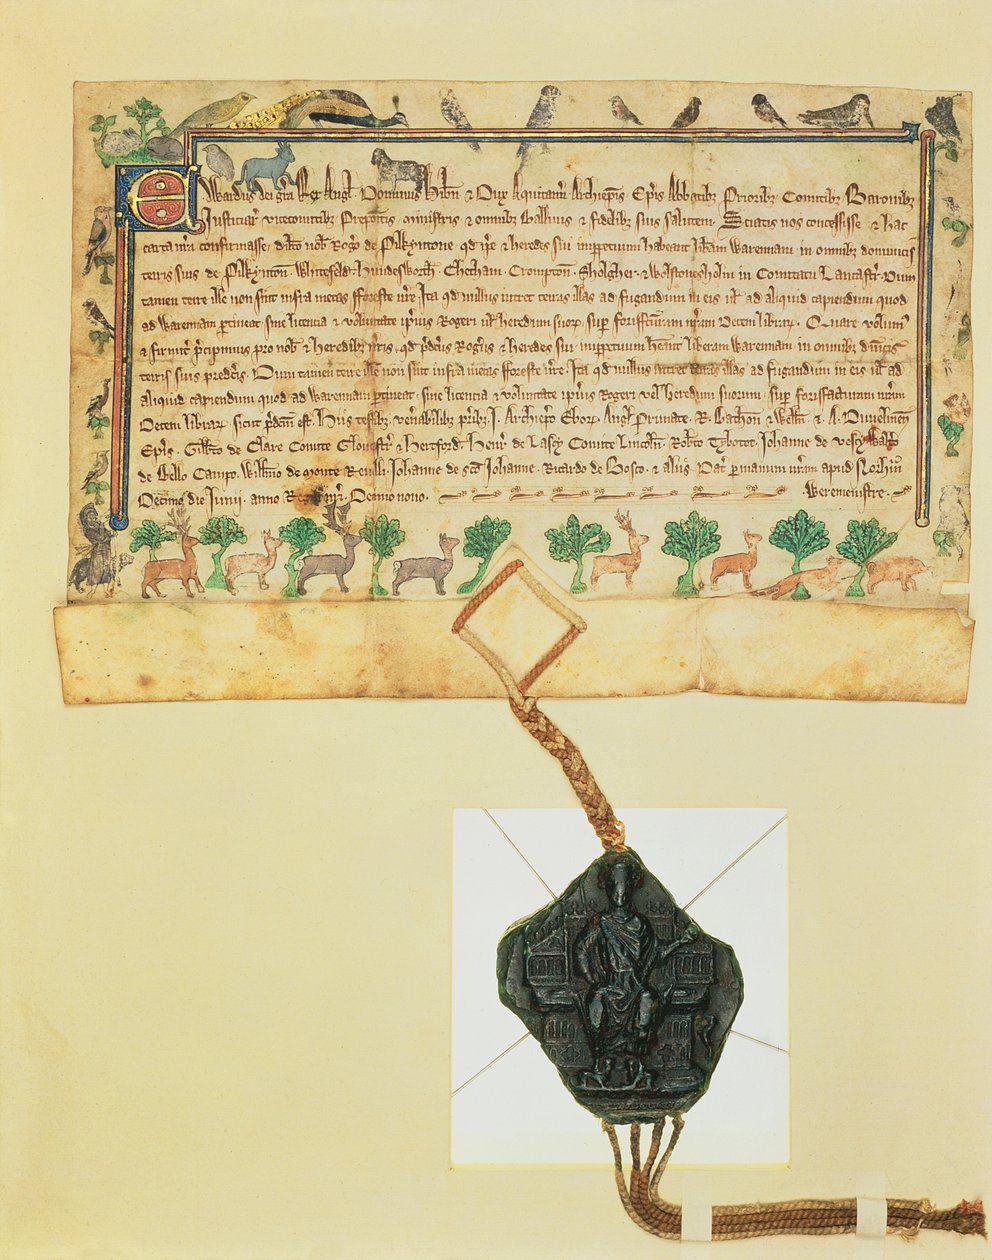 Edwardus dei gra Rex Angl Dominus Hibn & Dux Aquitann Archiepis Epis Abbatibz Prioribz Comitibz Baronibz
Justiciar vicecomitibz Prepositis ministris & omnibz Ballivis & fidelibz suis salutem. Sciatis nos concessisse & hac
carta nra confirmasse dilco nob Rogo de Pilkyntone qd ipe & heredes sui imppetuum habeant libam Warennam in omnibz dominicis
terris suis de Pilkynton. Whitefeld. Undesworth. Chetham. Crompton. Sholgher. & Wolstonesholm in Comitatu Lancastr. Dum
tamen terre ille non sint infra metas foreste nre. Ita qd nullus intret terras illas ad fugandum in eis ul ad aliquid capiendum quod
ad Warennam ptineat sine licencia & voluntate ipius Rogeri ul heredum suorz sup forisfcuram nram Decem librarz. Quare volum
& firmit pcipimus pro nob & heredibz nris qd pdcus Rogus & heredes sui imppetuum heant liberam Warennam in omnibz dnicis
terris suis predcis. Dum tamen terre ille non sint infra metas foreste nre. Ita qd nullus intret terras illas ad fugandum in eis ul ad
aliquid capiendum quod ad Warennam ptineat sine licencia & voluntate ipius Rogeri vel heredum suorum sup forisfacturam nram
Decem librarz sicut pdcm est. Hiis testibz venabilibz pribz. J. Archiepo Ebor Angl Primate. R. Bathon & Well & A. Dunelmen
Epis. Gilbto de Clare Comite Gloucestr & Hertford. Henr de Lascy Comite Lincoln. Robto Tybotot. Johanne de Vescy
de Bello Campo. Willmo de Monte Revelli. Johanne de sco Johanne. Ricardo de Bosco. & aliis. Dat p manum nram apud Norham
Decimo die Junii. anno Regni nri Decimo nono.